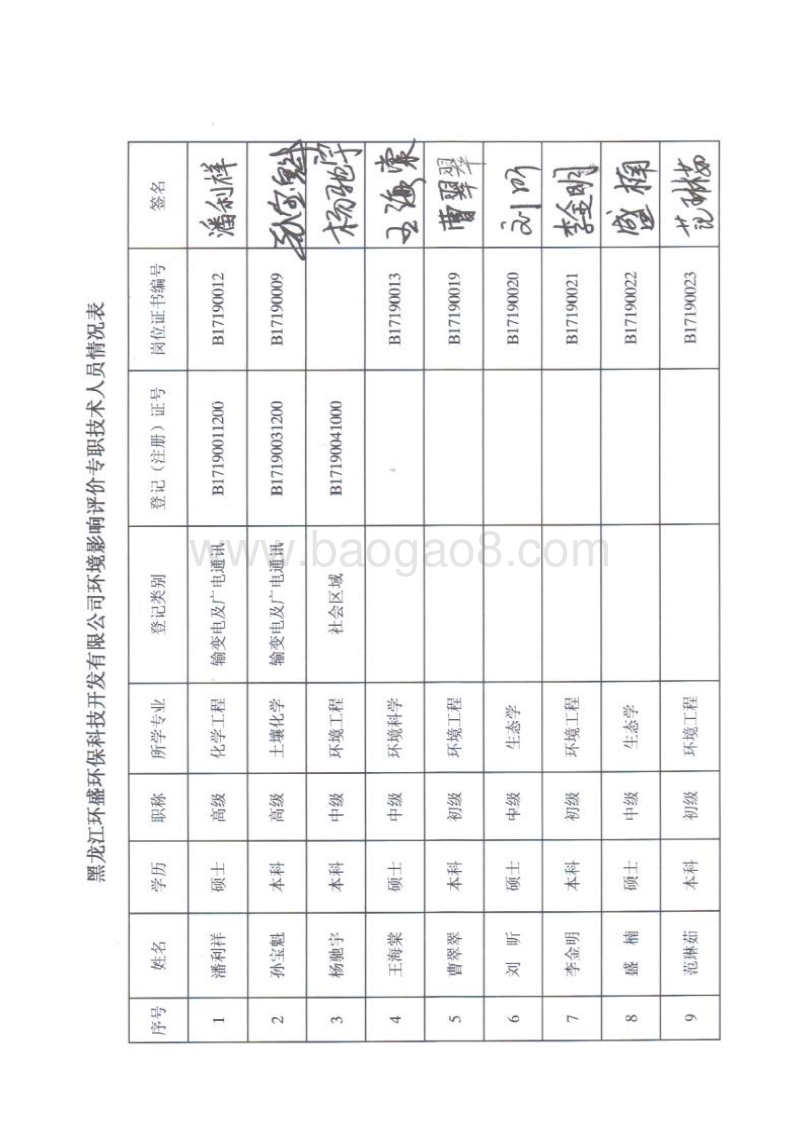 黑龙江环盛环保科技开发有限公司环境影响评价专职技术人员情况表
序号 姓名 学历 职称 所学专业 登记类别 登记（注册）证号 岗位证书编号 签名
1 潘利祥 硕士 高级 化学工程 输变电及广电通讯 B17190011200 B17190012 潘利祥
2 孙宝魁 本科 高级 土壤化学 输变电及广电通讯 B17190031200 B17190009 孙宝魁
3 杨驰宇 本科 中级 环境工程 社会区域 B17190041000 杨驰宇
4 王海棠 硕士 中级 环境科学 B17190013 王海棠
5 曹翠翠 本科 初级 环境工程 B17190019 曹翠翠
6 刘 昕 硕士 中级 生态学 B17190020 刘昕
7 李金明 本科 初级 环境工程 B17190021 李金明
8 盛 楠 硕士 中级 生态学 B17190022 盛楠
9 范琳茹 本科 初级 环境工程 B17190023 范琳茹
www.baogao8.com